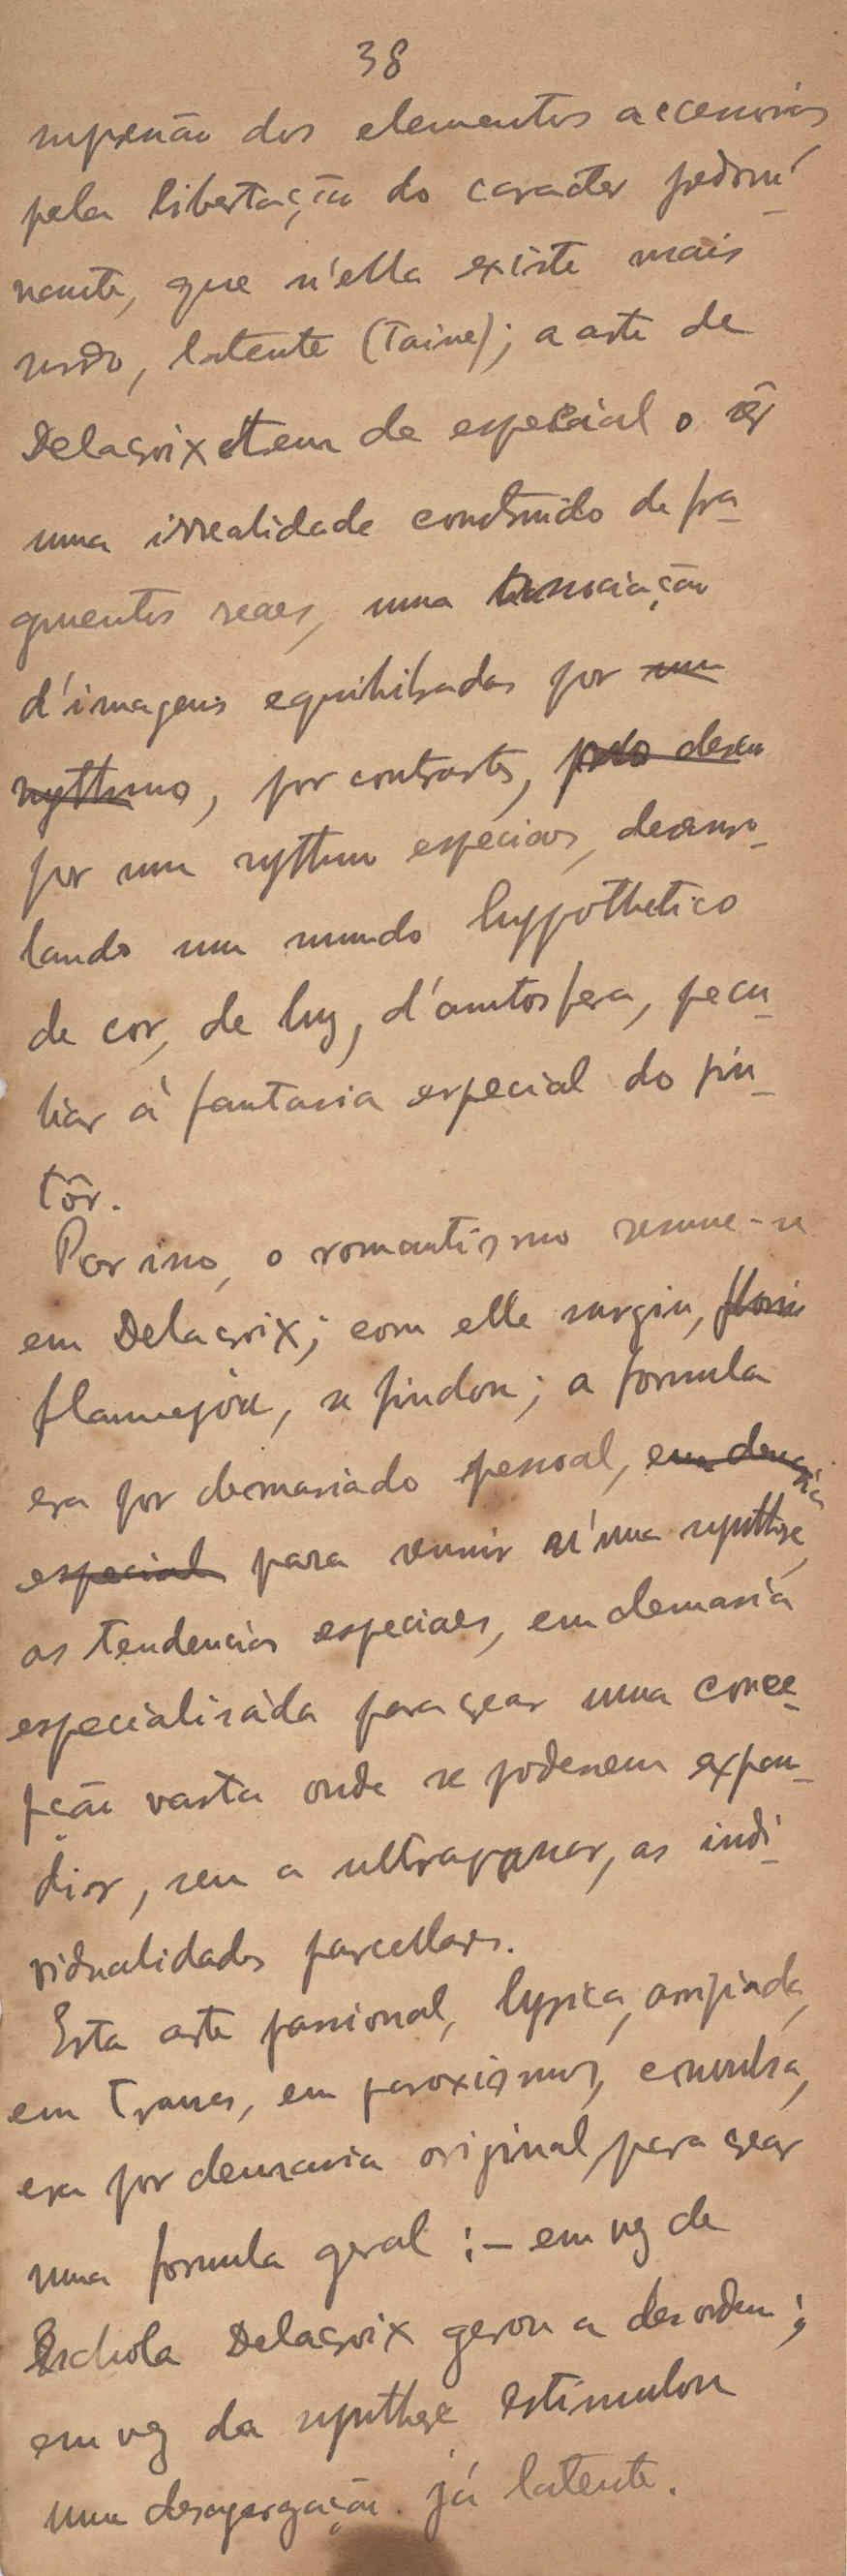 38
supressão dos elementos accessorios
pela libertação do caracter predomi-
nante, que n'ella existe mais
latente (Taine); a arte de
Delacroix tem de especial o ser
uma irrealidade construido de fra-
gmentos reaes, uma associação
d'imagens equilibradas por um
rythmo, por contrastes, pelo
por um rythmo especiaes, desenro-
lando um mundo hyppothetico
de cor, de luz, d'amtosfera, pecu-
liar à fantasia especial do pin-
tôr.
Por isso, o romantismo resume-se
em Delacroix; com elle surgiu,
flammejou, se findou; a formula
era por demasiado pessoal, em demasia
especial para reunir n'uma synthese
as tendencias especiaes, em demasia
especialisada para crear uma conce-
pção vasta onde se podessem expan-
dir, sem a ultrapassar, as indi-
vidualidades parcellares.
Esta arte passional, lyrica, arripiada,
em transes, em paroxismos, convulsa,
era por demasia original para crear
uma formula geral :– em vez de
Eschola Delacroix gerou a desordem;
em vez da synthese estimulou
uma desagregação já latente.